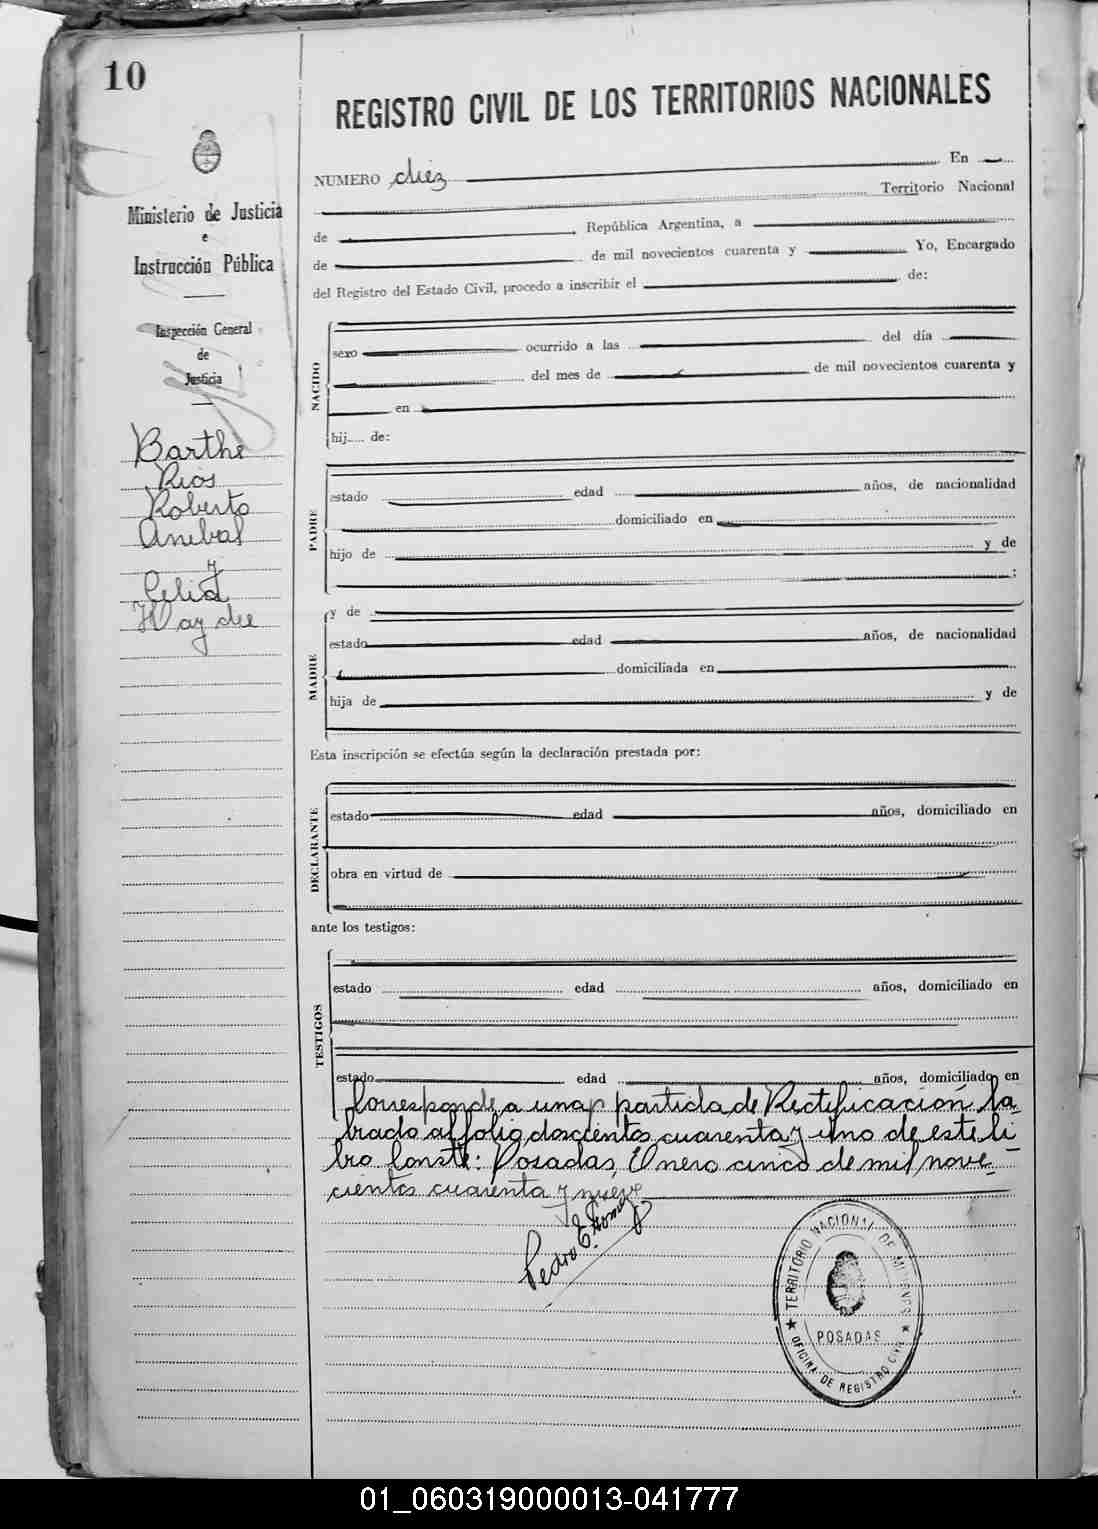 10
REGISTRO CIVIL DE LOS TERRITORIOS NACIONALES
Ministerio de Justicia
e
Instrucción Pública
Inspección General
de
Justicia
Barthe
Rios
Roberto
Anibal
y
Celia
Haydee
NUMERO diez En
Territorio Nacional
de República Argentina, a
de de mil novecientos cuarenta y Yo, Encargado
del Registro del Estado Civil, procedo a inscribir el de:
NACIDO
sexo ocurrido a las del día
del mes de de mil novecientos cuarenta y
en
hij.... de:
PADRE
estado edad años, de nacionalidad
domiciliado en
hijo de y de
;
MADRE
y de
estado edad años, de nacionalidad
domiciliada en
hija de y de
Esta inscripción se efectúa según la declaración prestada por:
DECLARANTE
estado edad años, domiciliado en
obra en virtud de
ante los testigos:
TESTIGOS
estado edad años, domiciliado en
estado edad años, domiciliado en
Corresponde a una partida de Rectificación la-
brado al folio doscientos cuarenta y uno de este li-
bro Conste: Posadas, Enero cinco de mil nove-
cientos cuarenta y nueve
Pedro E. Gomez
TERRITORIO NACIONAL DE MISIONES
POSADAS
OFICINA DE REGISTRO CIVIL
01_060319000013-041777